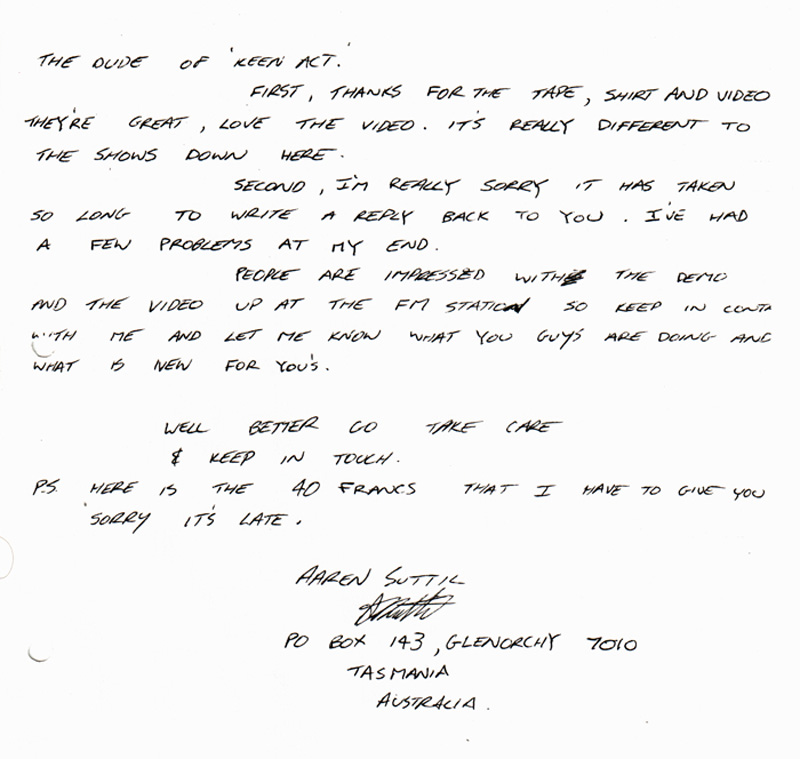 THE DUDE OF 'KEEN ACT.'
FIRST, THANKS FOR THE TAPE, SHIRT AND VIDEO
THEY'RE GREAT, LOVE THE VIDEO. IT'S REALLY DIFFERENT TO
THE SHOWS DOWN HERE.
SECOND, I'M REALLY SORRY IT HAS TAKEN
SO LONG TO WRITE A REPLY BACK TO YOU. I'VE HAD
A FEW PROBLEMS AT MY END.
PEOPLE ARE IMPRESSED WITH THE DEMO
AND THE VIDEO UP AT THE FM STATION SO KEEP IN CONTA
WITH ME AND LET ME KNOW WHAT YOU GUYS ARE DOING AND
WHAT IS NEW FOR YOU'S.
WELL BETTER GO TAKE CARE
& KEEP IN TOUCH.
P.S. HERE IS THE 40 FRANCS THAT I HAVE TO GIVE YOU
'SORRY IT'S LATE.
AAREN SUTTIL
PO BOX 143, GLENORCHY 7010
TASMANIA
AUSTRALIA.